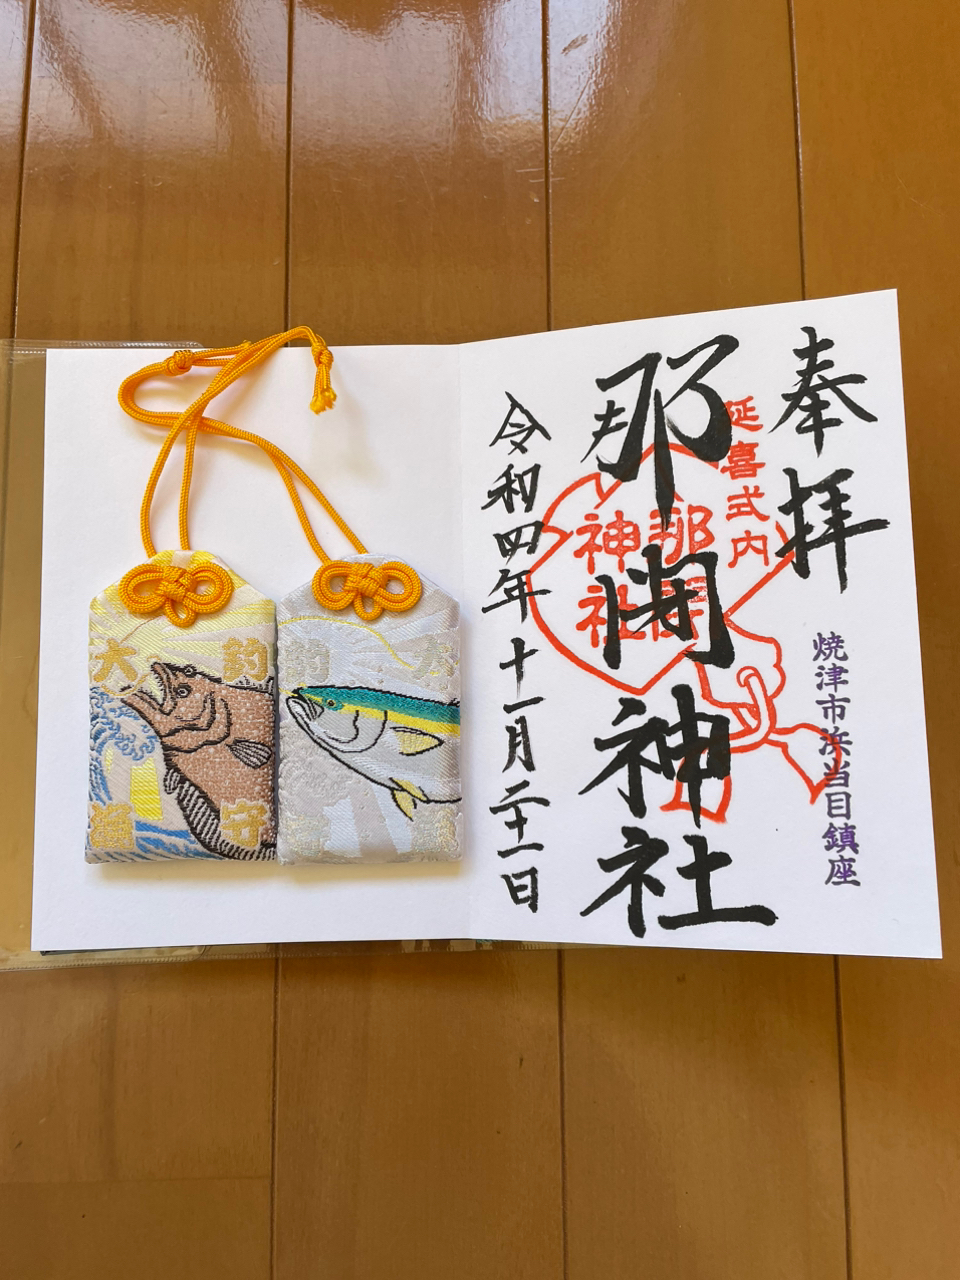 奉拝
延喜式内
焼津市浜当目鎮座
那閇神社
那閇神社
令和四年十一月二十一日
釣守
大
釣
大